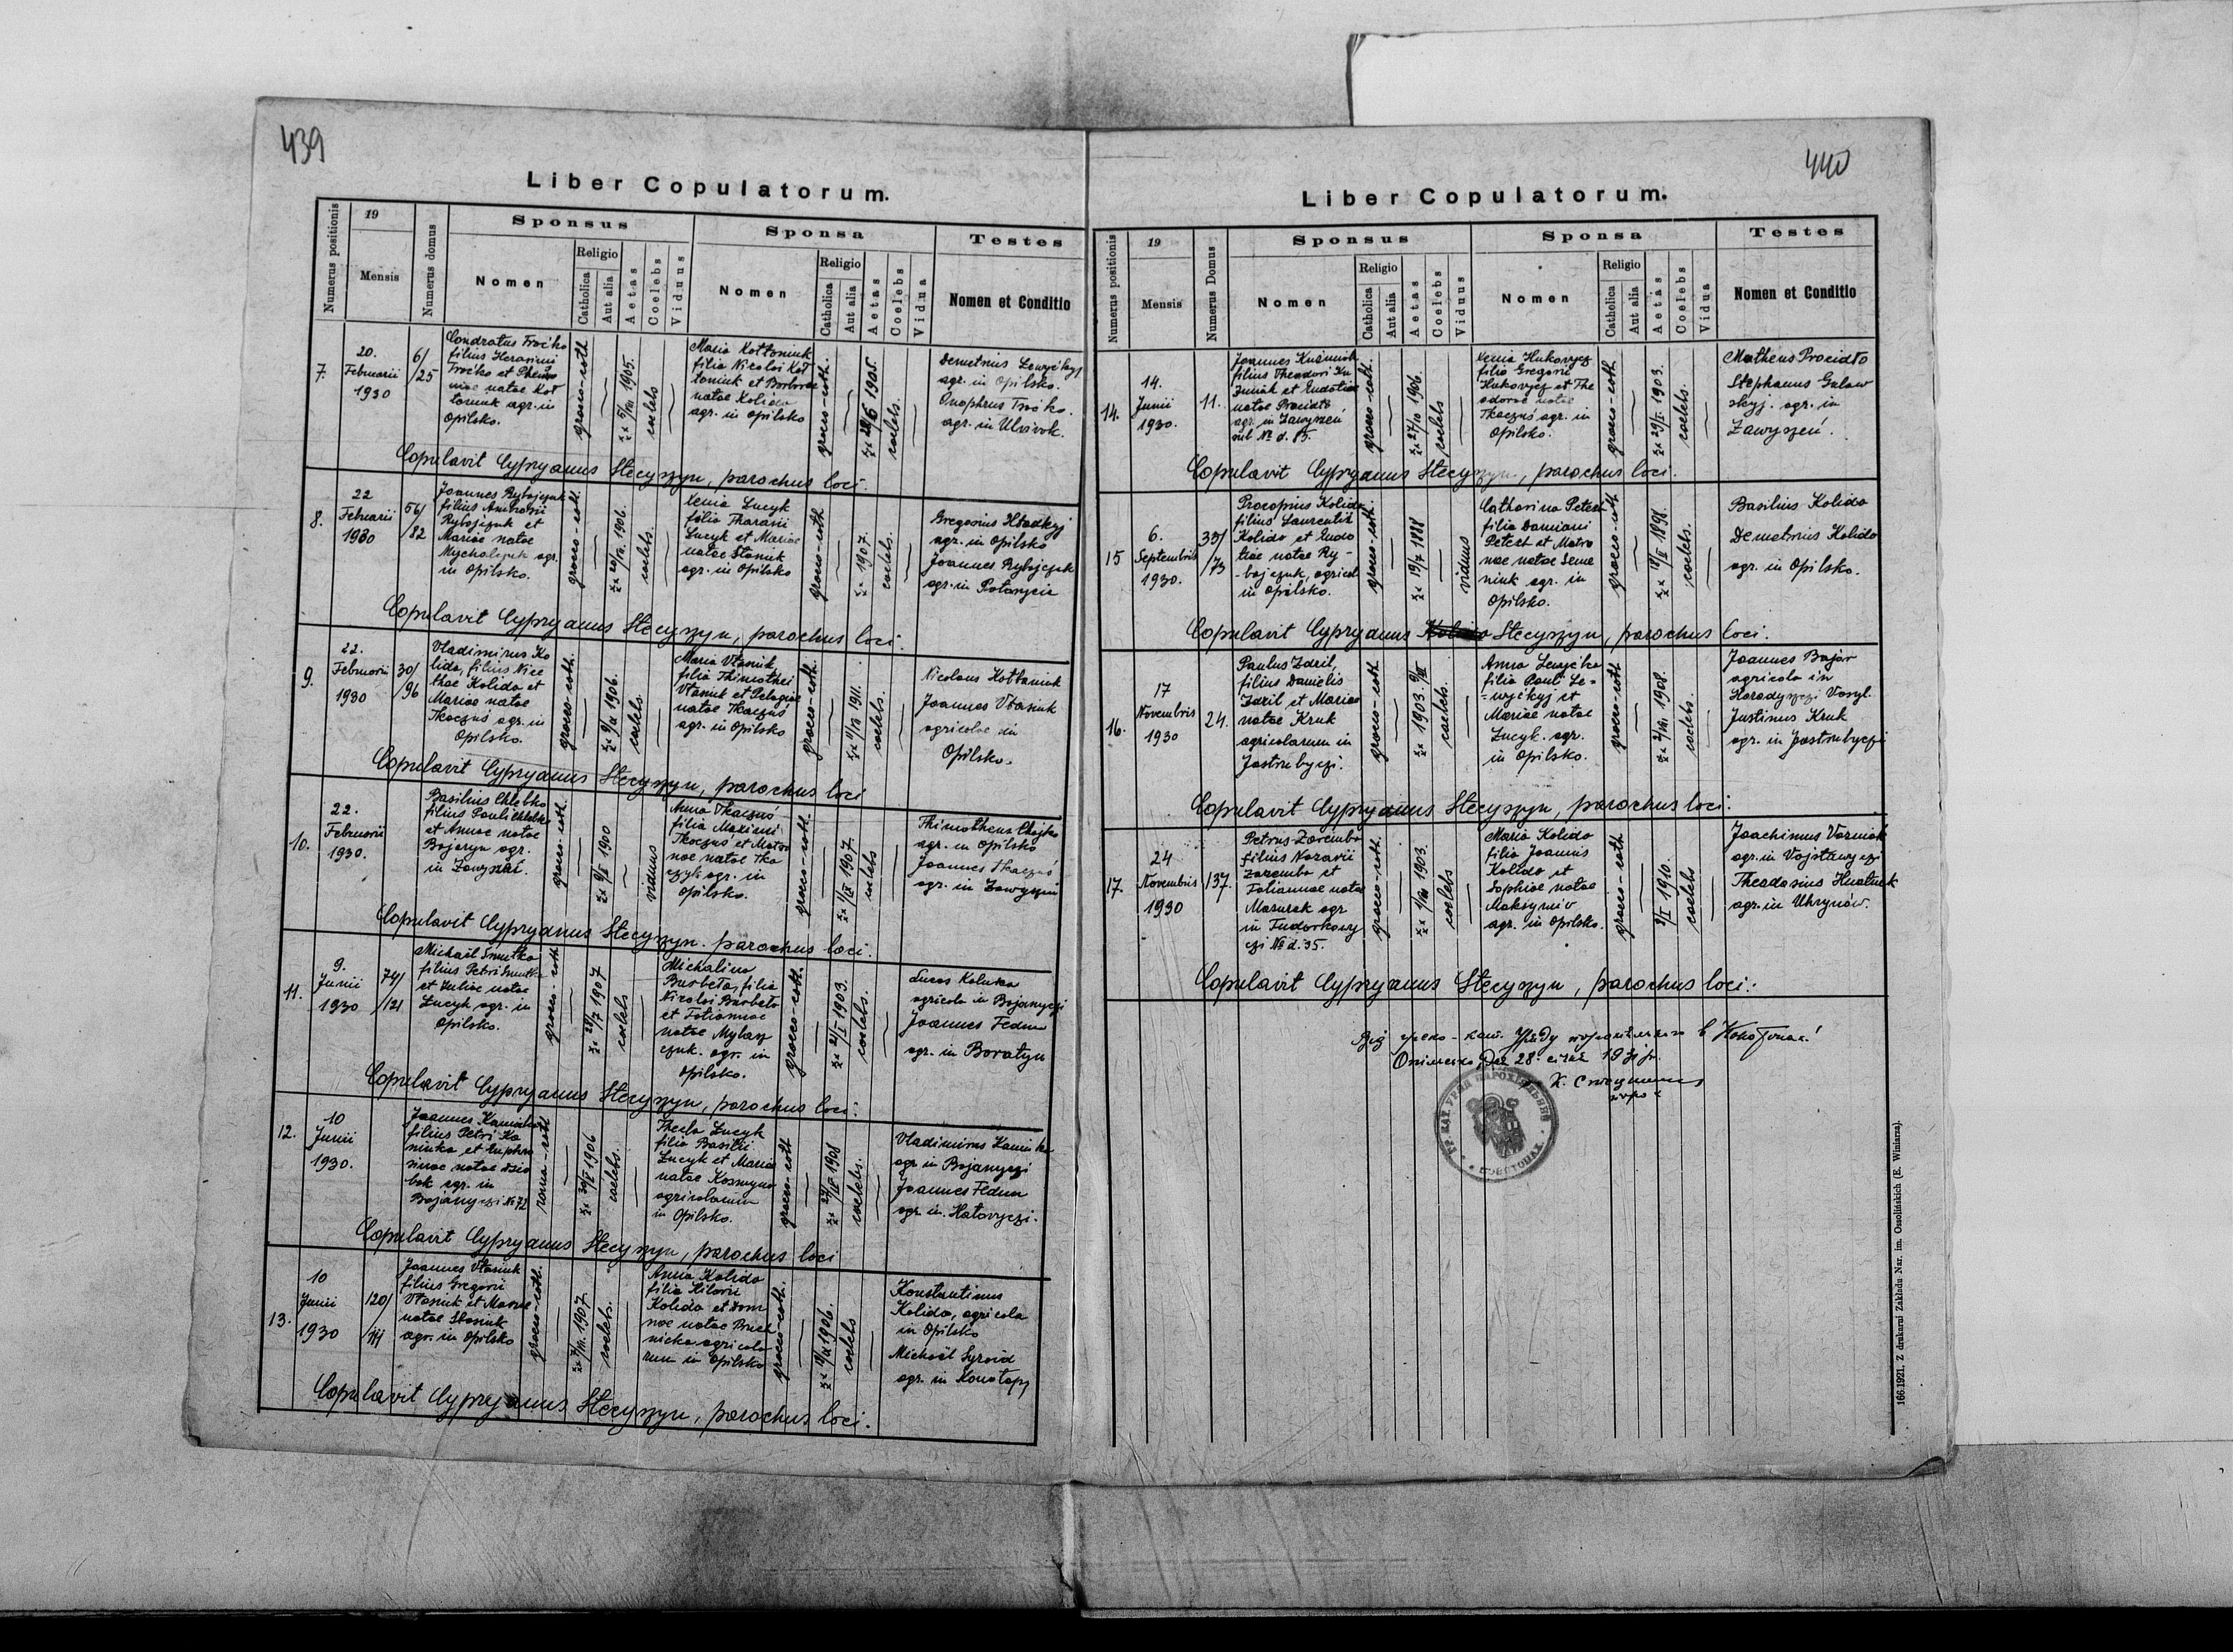 439
Liber Copulatorum.
Numerus positionis
19
Mensis
Numerus domus
Sponsus
Nomen
Religio
Catholica
Aut alia
Aetas
Coelebs
Viduus
Sponsa
Nomen
Religio
Catholica
Aut alia
Aetas
Coelebs
Vidua
Testes
Nomen et Conditio
7.
20.
Februarii
1930
6/
25
Condratus Troćko
filius Herasimi
Troćko et
niae natae Koł
toniuk agr. in
Opilsko.
graeco-cath.
1905.
coelebs
Maria Kołtoniuk
filia Nicolai Koł
toniuk et Barbarae
natae Kolida
agr. in Opilsko
graeco-cath.
1905.
coelebs.
Demetrius
agr. in Opilsko.
Onophrius Troćko.
agr. in Ulvivok.
Copulavit Cypryanus Stecyszyn, parochus loci.
8.
22
Februarii
1930
56/
82
Joannes Rybojczuk
filius Ambrosii
Rybojczuk et
Mariae natae
Mychalczuk agr.
in Opilsko.
graeco-cath.
1906.
coelebs.
Xenia Lucyk
filia Tharasii
Lucyk et Mariae
natae Stasiuk
agr. in Opilsko
graeco-cath
1907.
coelebs.
Gregorius Hładkyj
agr. in Opilsko
Joannes Rybojczuk
agr. in
Copulavit Cypryanus Stecyszyn, parochus loci.
9.
22.
Februarii
1930
30/
96
Vladimirus Ko
lida, filius Nice
thae Kolida et
Mariae natae
Tkaczuś agr. in
Opilsko.
graeco-cath.
1906.
coelebs.
Maria Vłasiuk
filia Thimothei
Vłasiuk et Pelagiae
natae Tkaczuś
agr. in Opilsko
graeco-cath.
1911.
coelebs.
Nicolaus Kołtaniuk
Joannes Vłasiuk
agricolae in
Opilsko.
Copulavit Cypryanus Stecyszyn, parochus loci
10.
22.
Februarii
1930.
Basilius Chlebko
filius Pauli Chlebko
et Annae natae
Bojaryn agr.
in
graeco-cath.
1900
viduus
Anna Tkaczuś
filia Maximi
Tkaczuś et Matro
nae natae Tka
czyk agr. in
Opilsko.
graeco-cath.
1907.
coelebs
Thimotheus
agr. in Opilsko
Joannes Tkaczuś
agr. in Zawyszeń
Copulavit Cypryanus Stecyszyn. parochus loci.
11.
9.
Junii
1930
74/
121
Michaël Smutko
filius Petri Smutko
et Juliae natae
Łucyk agr. in
Opilsko.
graeco-cath
1907
coelebs
Michalina
Burbeła, filia
Nicolai Burbeła
et Tatiannae
natae
czuk. agr. in
Opilsko.
graeco-cath.
1903.
coelebs.
Lucas Kaluka
agricola in Bojanyczi
Joannes Fedun
agr. in Boratyn
Copulavit Cypryanus Stecyszyn, parochus loci.
12.
10
Junii
1930.
Joannes Kaminka
filius Petri Ka
minka et Euphro
sinae natae
bok agr. in
Bojanyczi № 72
roma-cath
1906
coelebs.
Thecla Łucyk
filia Basilii
Łucyk et Mariae
natae Kosmyna
agricolarum
in Opilsko.
graeco-cath
1908
coelebs.
Vladimirus Kaminka
agr. in Bojanyczi
Joannes Fedun
agr. in. Hatovyczi.
Copulavit Cypryanus Stecyszyn, parochus loci
13.
10
Junii
1930
120/
Joannes Vłasiuk
filius Gregorii
Vłasiuk et Mariae
natae Stasiuk
agr. in Opilsko
graeco-cath.
1907
coelebs.
Anna Kolida
filia Hilarii
Kolida et Dom
nae natae
nicka agricola
rum in Opilsko
graeco-cath.
1906.
coelebs
Konstantinus
Kolida, agricola
in Opilsko
Michaël Syroid
agr. in Konotopy
Copulavit Cypryanus Stecyszyn, parochus loci.
440
Liber Copulatorum.
Numerus positionis
19
Mensis
Numerus Domus
Sponsus
Nomen
Religio
Catholica
Aut alia
Aetas
Coelebs
Viduus
Sponsa
Nomen
Religio
Catholica
Aut alia
Aetas
Coelebs
Vidua
Testes
Nomen et Conditio
14.
14.
Junii
1930.
11.
Joannes Kuźmiuk
filius Theodori Ku
źmiuk et Eudotiae
natae Procidło
agr. in Zawyszeń
sub № d. 85.
graeco-cath.
27/10 1906.
coelebs
Xenia Hukovycz
filia Gregorii
Hukovycz et The
odorae natae
Tkaczuś agr. in
Opilsko.
graeco-cath.
29/I. 1903.
coelebs.
Matheus Procidło
Stephanus Galaw
skyj. agr. in
Zawyszeń.
Copulavit Cypryanus Stecyszyn, parochus loci.
15
6.
Septembris
1930.
35/
73
Procopius Kolida
filius Laurentii
Kolida et Eudo
tiae natae Ry-
bojczuk, agricol.
in Opilsko.
graeco-cath.
19/7 1888
viduus
Catharina Petech
filia Damiani
Petech et Matro
nae natae Seme
niuk agr. in
Opilsko.
graeco-cath
1898.
coelebs.
Basilius Kolida
Demetrius Kolida
agr. in Opilsko.
Copulavit Cypryanus Kolida Stecyszyn, parochus loci.
16.
17
Novembris
1930
24.
Paulus Zdril,
filius Danielis
Zdril et Mariae
natae Kruk
agricolarum in
Jastrubyczi.
graeco-cath
1903.
coelebs.
Anna Lewyćka
filia Pauli Le=
=wyćkyj et
Mariae natae
Łucyk. agr.
in Opilsko.
graeco-cath
1908.
coelebs.
Joannes Bojar
agricola in
Vasyl.
Justinus Kruk
agr. in Jastrubyczi
Copulavit Cypryanus Stecyszyn, parochus loci.
17.
24
Novembris
1930
137.
Petrus Zaremba
filius Nazarii
Zaremba et
Tatiannae natae
Mazurak agr
in Tudorkowy
czi № d. 35.
graeco-cath.
1903.
coelebs
Maria Kolida
filia Joannis
Kolida et
Sophiae natae
Maksymiv
agr. in Opilsko.
graeco-cath
1910.
coelebs
Joachimus Vozniak
agr. in Vojsławyczi
Theodosius Hnatiuk
agr. in Uhrynów.
Copulavit Cypryanus Stecyszyn, parochus loci.
28.
166.1921. Z drukarni Zakładu Nar. im. Ossolińskich (E. Winiarz).